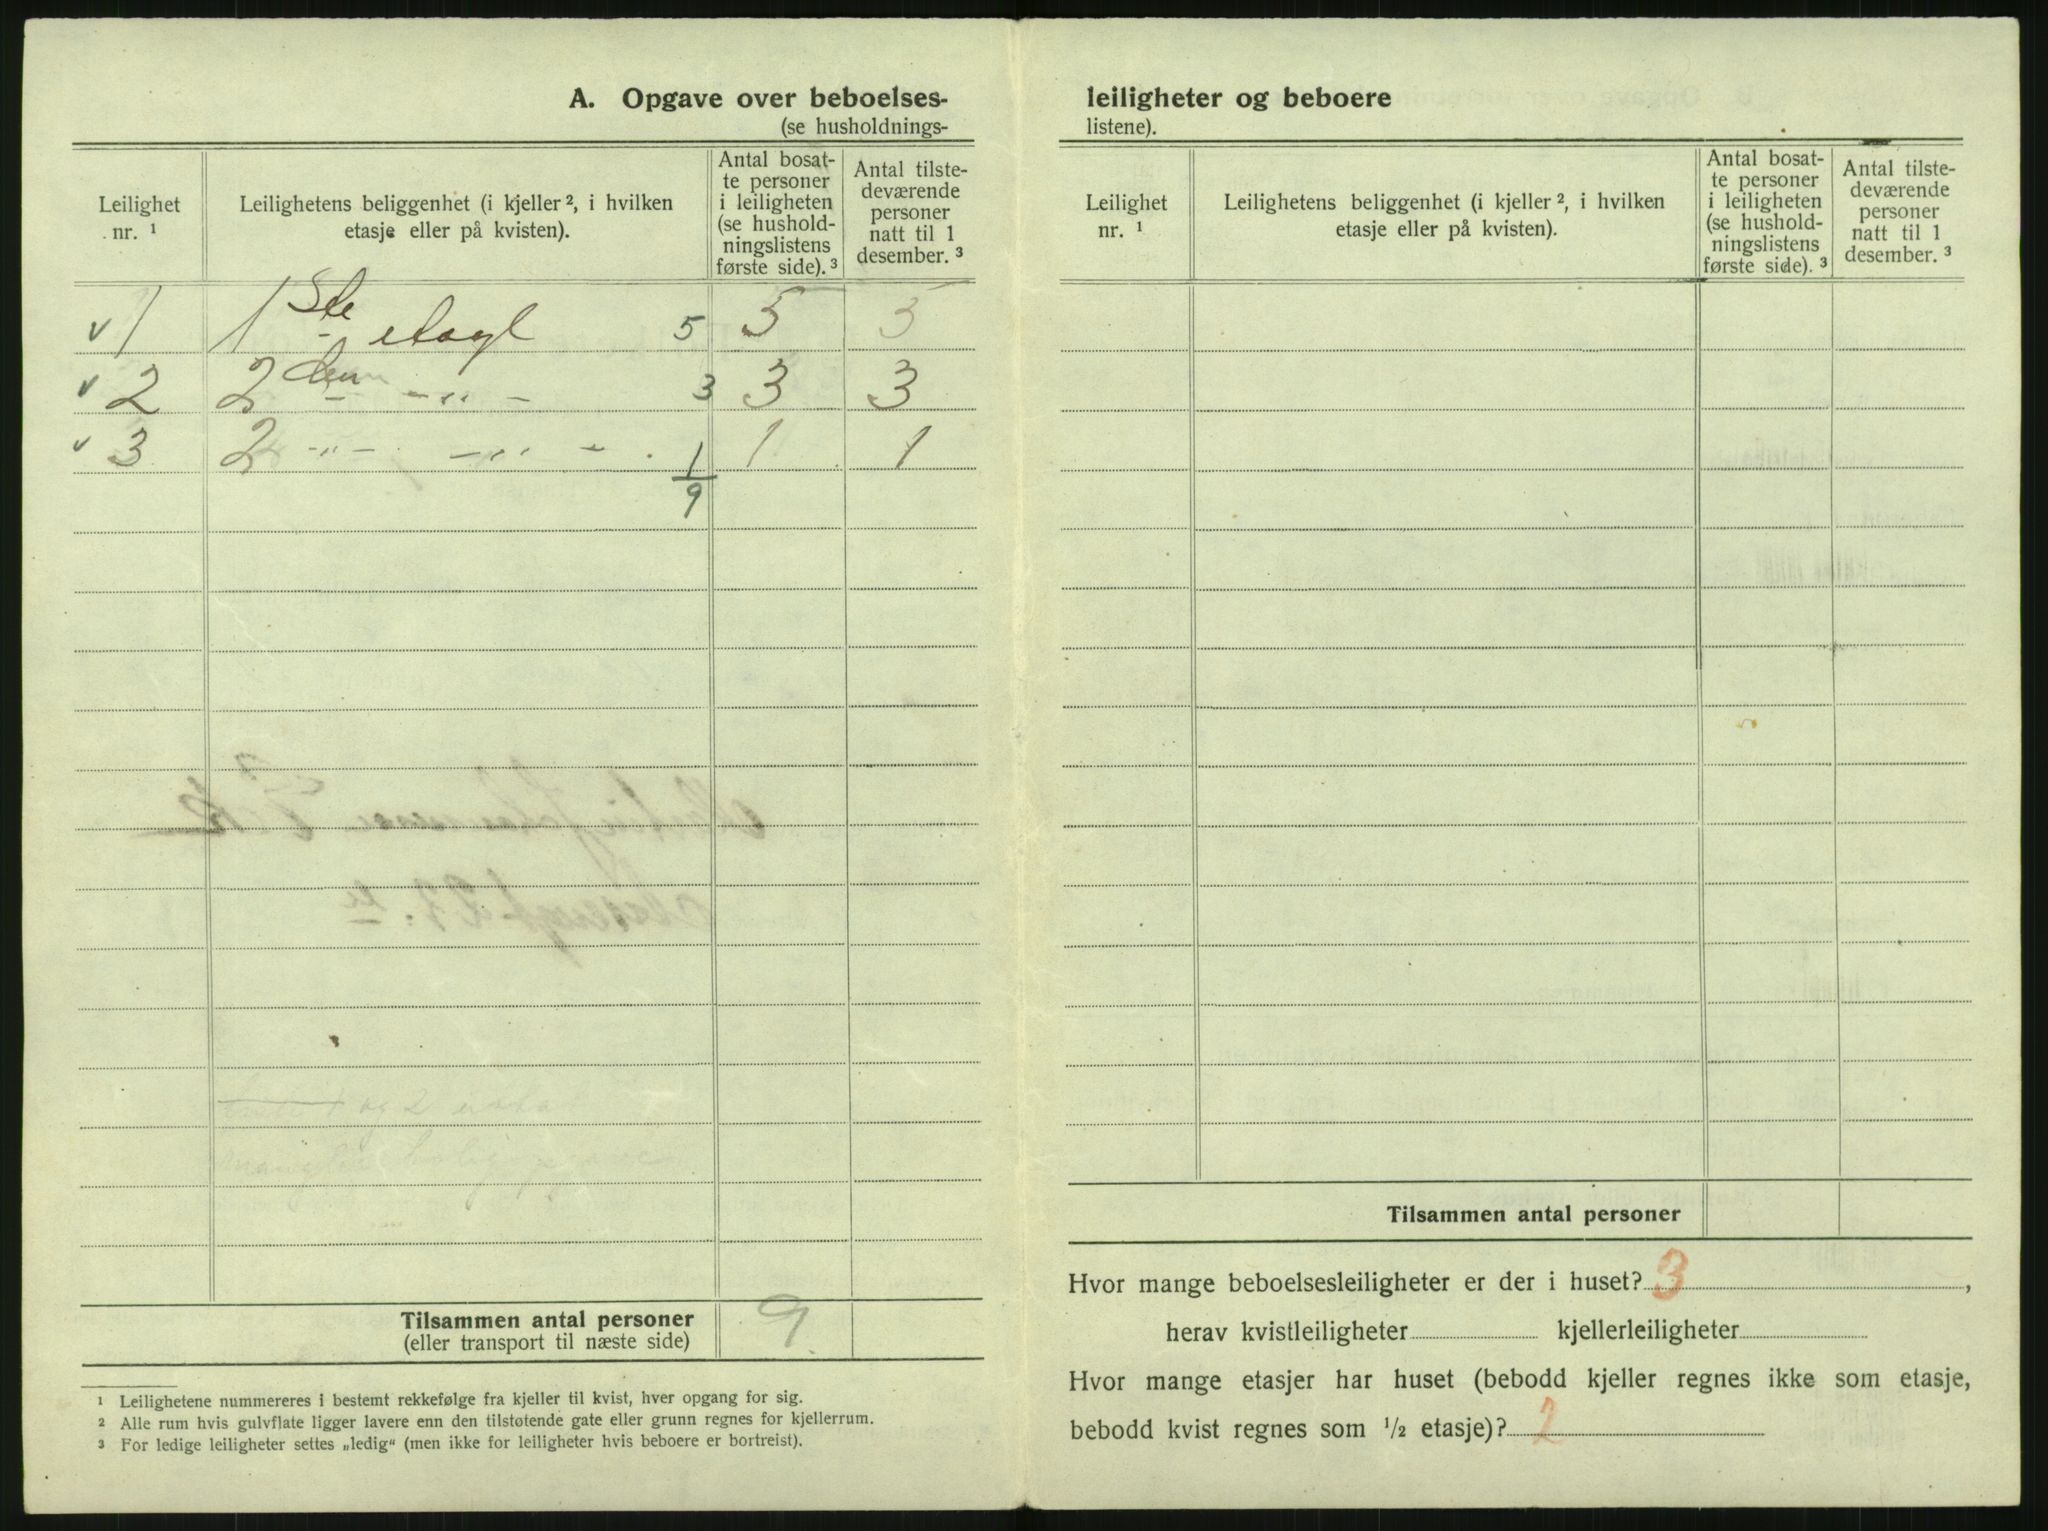 A. Opgave over beboelses-
(se husholdnings-
Leilighet nr. ¹
Leilighetens beliggenhet (i kjeller ², i hvilken etasje eller på kvisten).
Antal bosat-
te personer
i leiligheten
(se hushold-
ningslistens
første side). ³
Antal tilste-
deværende
personer
natt til 1
desember. ³
v 1 1ste etage 5 5 5
v 2 2den - „ - 3 3 3
v 3 2 - „ - - „ - 1 1 1
9
og 2
mangler
Tilsammen antal personer 9
(eller transport til næste side)
¹ Leilighetene nummereres i bestemt rekkefølge fra kjeller til kvist, hver opgang for sig.
² Alle rum hvis gulvflate ligger lavere enn den tilstøtende gate eller grunn regnes for kjellerrum.
³ For ledige leiligheter settes „ledig“ (men ikke for leiligheter hvis beboere er bortreist).
leiligheter og beboere
listene).
Leilighet nr. ¹
Leilighetens beliggenhet (i kjeller ², i hvilken etasje eller på kvisten).
Antal bosat-
te personer
i leiligheten
(se hushold-
ningslistens
første side). ³
Antal tilste-
deværende
personer
natt til 1
desember. ³
Tilsammen antal personer
Hvor mange beboelsesleiligheter er der i huset? 3,
herav kvistleiligheter kjellerleiligheter
Hvor mange etasjer har huset (bebodd kjeller regnes ikke som etasje,
bebodd kvist regnes som ½ etasje)? 2